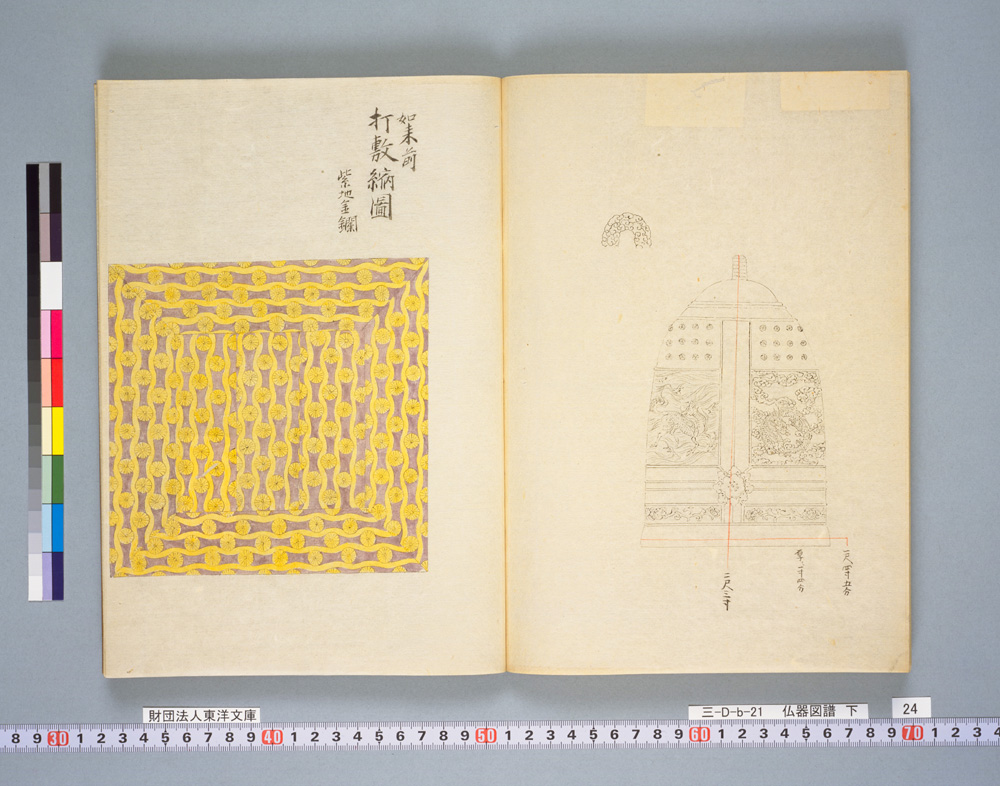 如来前
打敷縮圖
紫地金襴
一尺四寸五分
厚一寸四分
二尺三寸
財団法人東洋文庫
三-D-b-21 仏器図譜 下
24
8 9 30 1 2 3 4 5 6 7 8 9 40 1 2 3 4 5 6 7 8 9 50 1 2 3 4 5 6 7 8 9 60 1 2 3 4 5 6 7 8 9 70 1 2 3 4